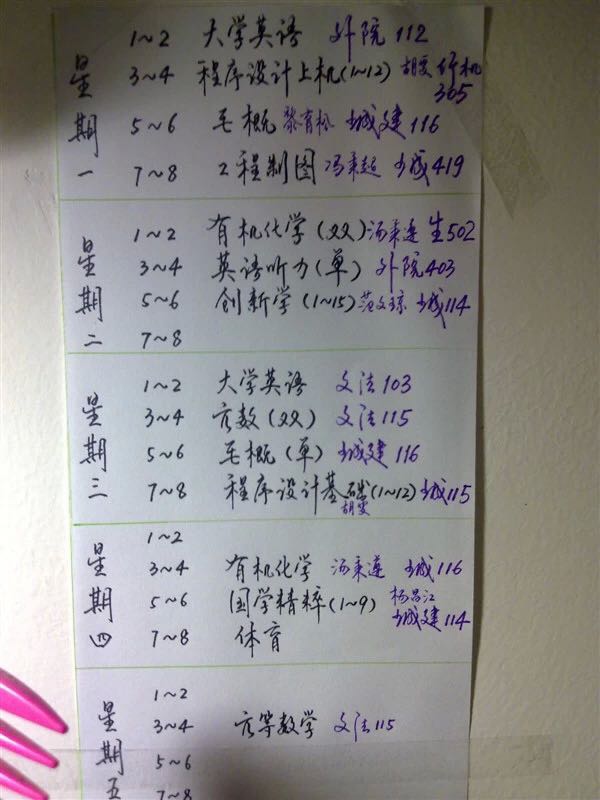 星期一
1~2 大学英语 外院112
3~4 程序设计上机(1~12) 胡雯 行机305
5~6 毛概 黎育松 城建116
7~8 工程制图 冯秉超 城419
星期二
1~2 有机化学(双) 汤秉莲 生502
3~4 英语听力(单) 外院403
5~6 创新学(1~15) 范文琼 城114
7~8
星期三
1~2 大学英语 文法103
3~4 高数(双) 文法115
5~6 毛概(单) 城建116
7~8 程序设计基础(1~12) 城115
胡雯
星期四
1~2
3~4 有机化学 汤秉莲 城116
5~6 国学精粹(1~9) 杨昌江
城建114
7~8 体育
星期五
1~2
3~4 高等数学 文法115
5~6
7~8